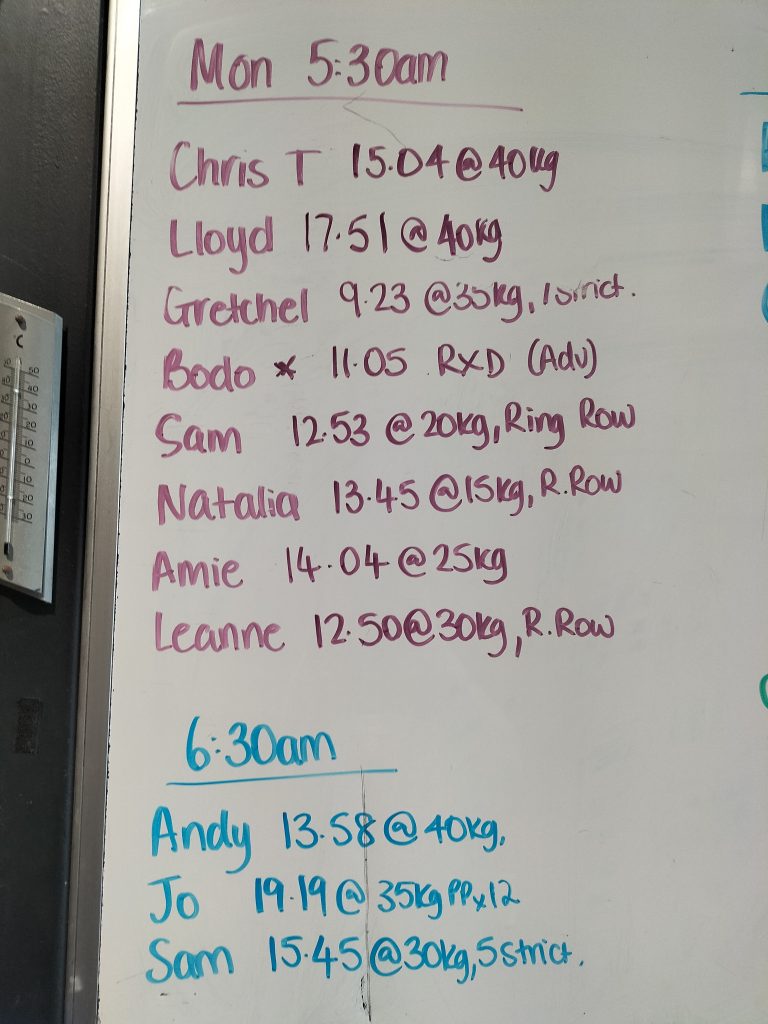 Mon 5:30am
Chris T 15.04 @ 40kg
Lloyd 17.51 @ 40kg
Gretchel 9.23 @35kg, 1 strict.
Bodo * 11.05 RXD (Adv)
Sam 12.53 @ 20kg, Ring Row
Natalia 13.45 @15kg, R.Row
Amie 14.04 @ 25kg
Leanne 12.50@30kg, R.Row
6:30am
Andy 13.58 @ 40kg,
Jo 19.19 @ 35kg PPx12
Sam 15.45 @30kg, 5 strict.